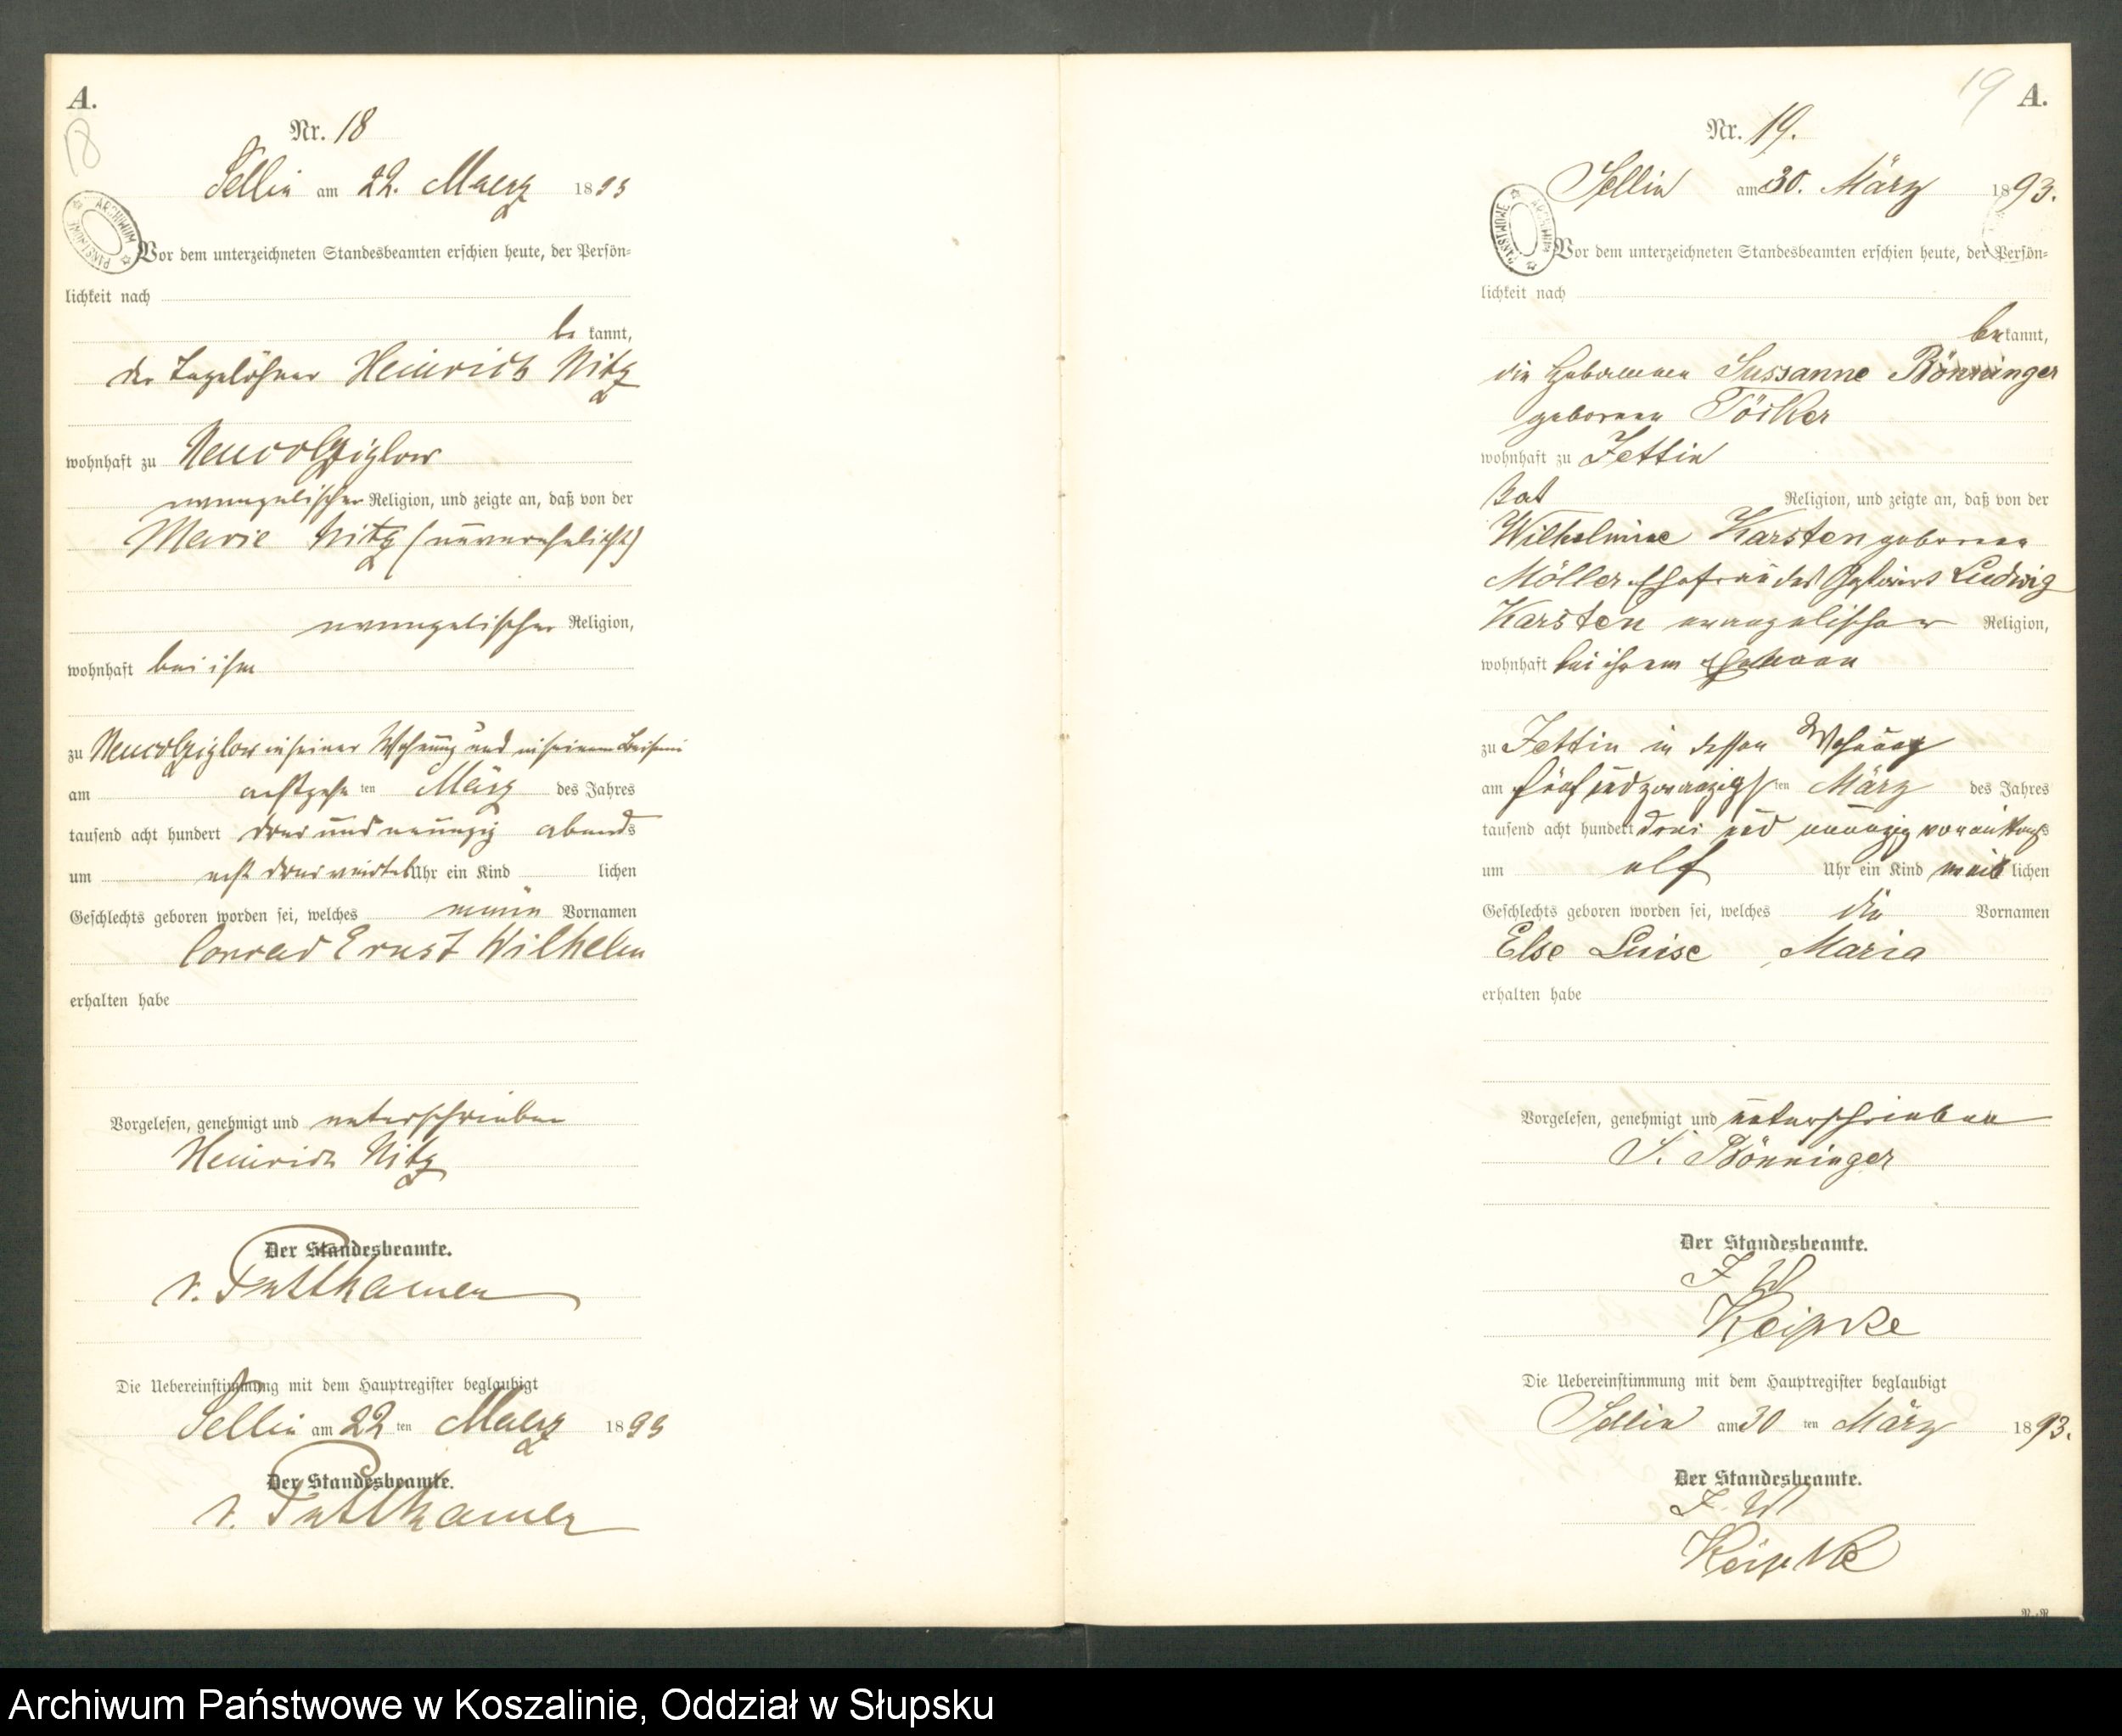 A.
18
Nr. 18
Sellin am 22. Maerz 1893
Vor dem unterzeichneten Standesbeamten erschien heute, der Persön-
lichkeit nach
be kannt,
der Tagelöhner Heinrich Nitz
wohnhaft zu Neucolziglow
evangelischer Religion, und zeigte an, daß von der
Marie Nitz (unverehelicht)
evangelischer Religion,
wohnhaft bei ihm
zu Neucolziglow in seiner Wohnung und in seinem Beisein
am achtzehn ten März des Jahres
tausend acht hundert drei und neunzig abends
um acht dreiviertel Uhr ein Kind lichen
Geschlechts geboren worden sei, welches Vornamen
Conrad Ernst Wilhelm
erhalten habe
Vorgelesen, genehmigt und unterschrieben
Heinrich Nitz
Der Standesbeamte.
v. Puttkamer
Die Uebereinstimmung mit dem Hauptregister beglaubigt
Sellin am 22 ten Maerz 1893
Der Standesbeamte.
v. Puttkamer
19
A.
Nr. 19.
Sellin am 30. März 1893.
Vor dem unterzeichneten Standesbeamten erschien heute, der Persön-
lichkeit nach
be kannt,
die Hebamme Sussanne Bönninger
geborene
wohnhaft zu Jettin
Religion, und zeigte an, daß von der
Wilhelmine Karsten geborene
Möller Ehefrau des Ludwig
Karsten evangelischer Religion,
wohnhaft bei ihrem Ehemann
zu Jettin in dessen Wohnung
am fünf und zwanzigs ten März des Jahres
tausend acht hundert drei und neunzig vormittags
um elf Uhr ein Kind weib lichen
Geschlechts geboren worden sei, welches die Vornamen
Else Luise Maria
erhalten habe
Vorgelesen, genehmigt und unterschrieben
S. Bönninger
Der Standesbeamte.
J. V.
Keipke
Die Uebereinstimmung mit dem Hauptregister beglaubigt
Sellin am 30 ten März 1893.
Der Standesbeamte.
J. V.
Keipke
Archiwum Państwowe w Koszalinie, Oddział w Słupsku